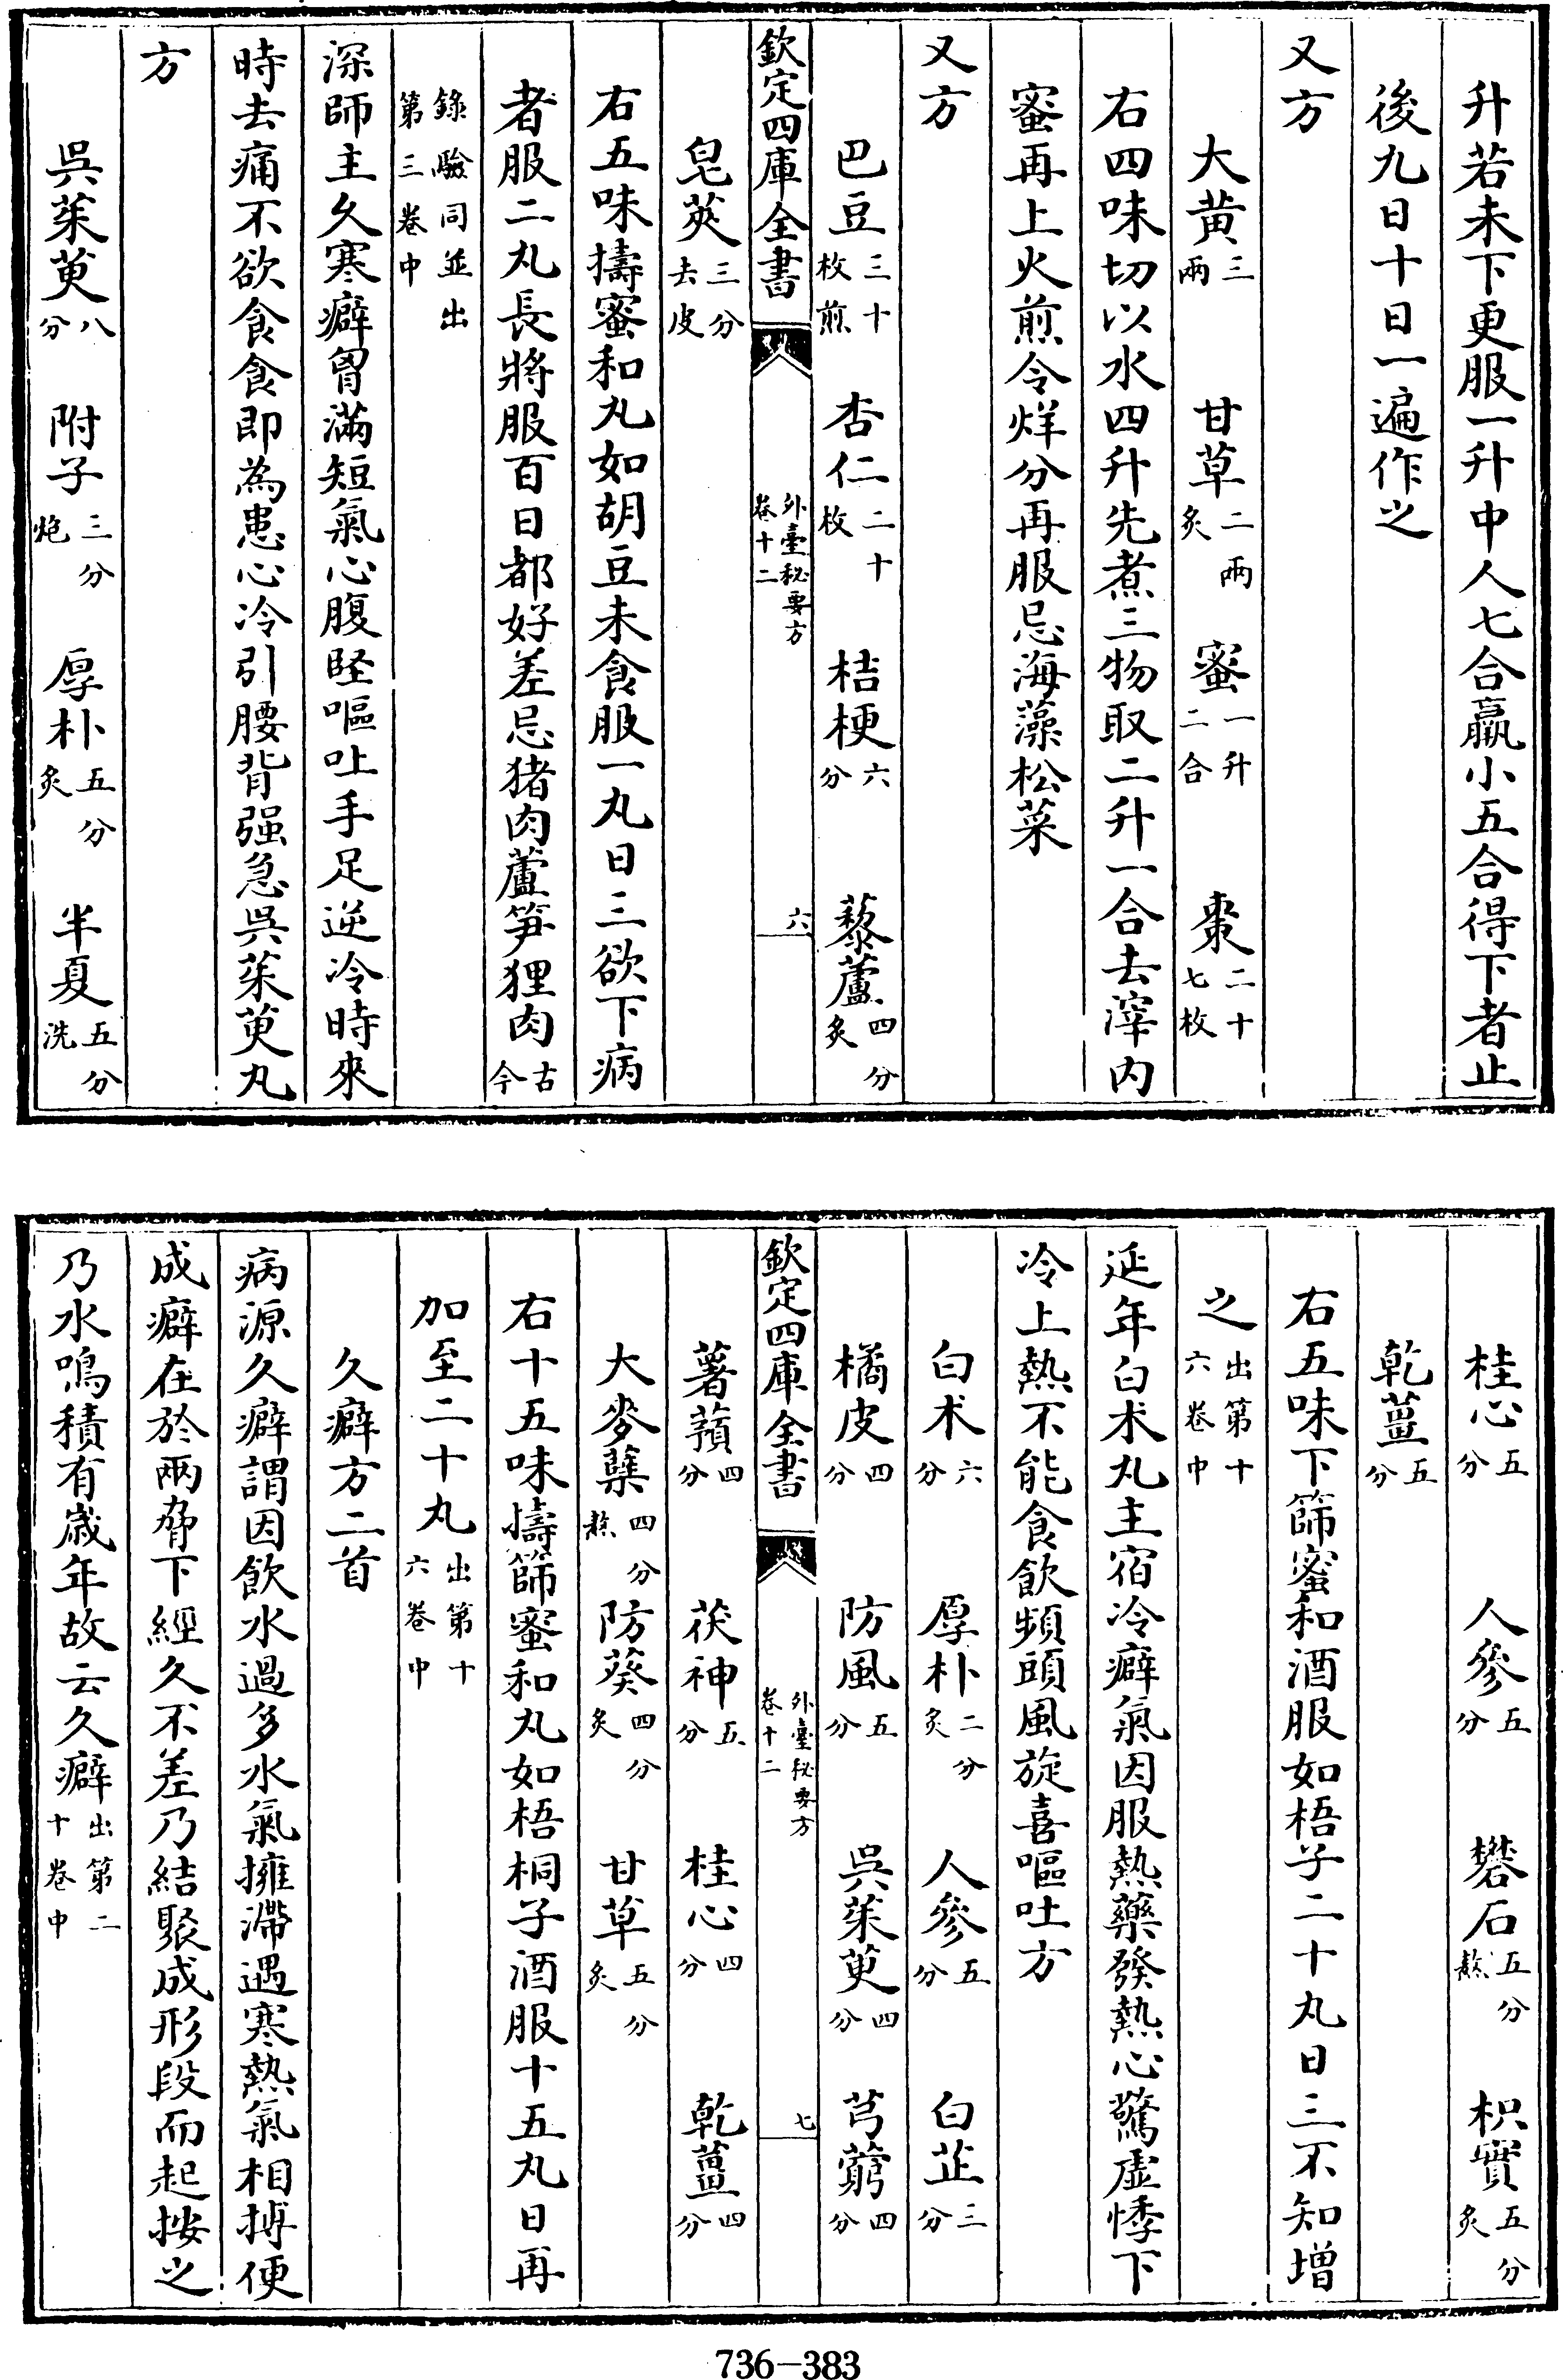 升若未下更服一升中人七合羸小五合得下者止
後九日十日一遍作之
又方
大黄三兩 甘草二兩炙 蜜一升二合 棗二十七枚
右四味切以水四升先煮三物取二升一合去滓内
蜜再上火煎令烊分再服忌海藻松菜
又方
巴豆三十枚煎 杏仁二十枚 桔梗六分 藜蘆四分炙
欽定四庫全書 外臺秘要方卷十二 六
皂莢三分去皮
右五味擣蜜和丸如胡豆未食服一丸日三欲下病
者服二丸長將服百日都好差忌猪肉蘆笋狸肉古今
錄驗同並出第三卷中
深師主久寒癖胷滿短氣心腹堅嘔吐手足逆冷時來
時去痛不欲食食即為患心冷引腰背强急吳茱萸丸
方
吳茱萸八分 附子三分炮 厚朴五分炙 半夏五分洗
桂心五分 人參五分 礬石五分熬 枳實五分炙
乾薑五分
右五味下篩蜜和酒服如梧子二十丸日三不知增
之出第十六卷中
延年白朮丸主宿冷癖氣因服熱藥發熱心驚虛悸下
冷上熱不能食飲頻頭風旋喜嘔吐方
白朮六分 厚朴二分炙 人參五分 白芷三分
橘皮四分 防風五分 吳茱萸四分 芎藭四分
欽定四庫全書 外臺秘要方卷十二 七
薯蕷四分 茯神五分 桂心四分 乾薑四分
大麥蘖四分熬 防葵四分炙 甘草五分炙
右十五味擣篩蜜和丸如梧桐子酒服十五丸日再
加至二十丸出第十六卷中
久癖方二首
病源久癖謂因飲水過多水氣擁滯遇寒熱氣相搏便
成癖在於兩脅下經久不差乃結聚成形段而起按之
乃水鳴積有歲年故云久癖出第二十卷中
736-383